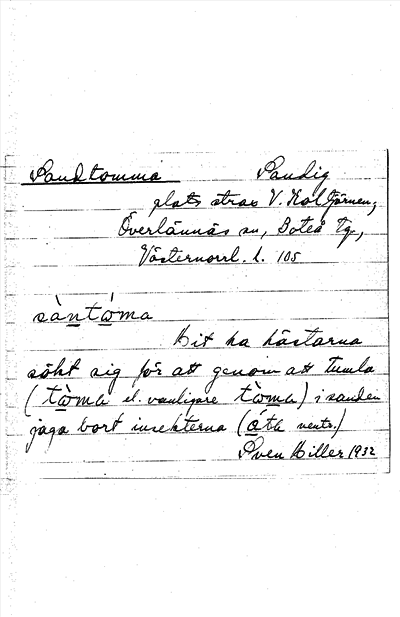 Sandtomma Sandig
plats strax V. Koltjärnen,
Överlännäs sn, Boteå tg,
Västernorrl. l. 105
sàntòma
Hit ha hästarna
sökt sig för att genom att tumla
(tòma el. vanligare tòma) i sanden
jaga bort insekterna (áta neutr.)
Sven Hiller 1932